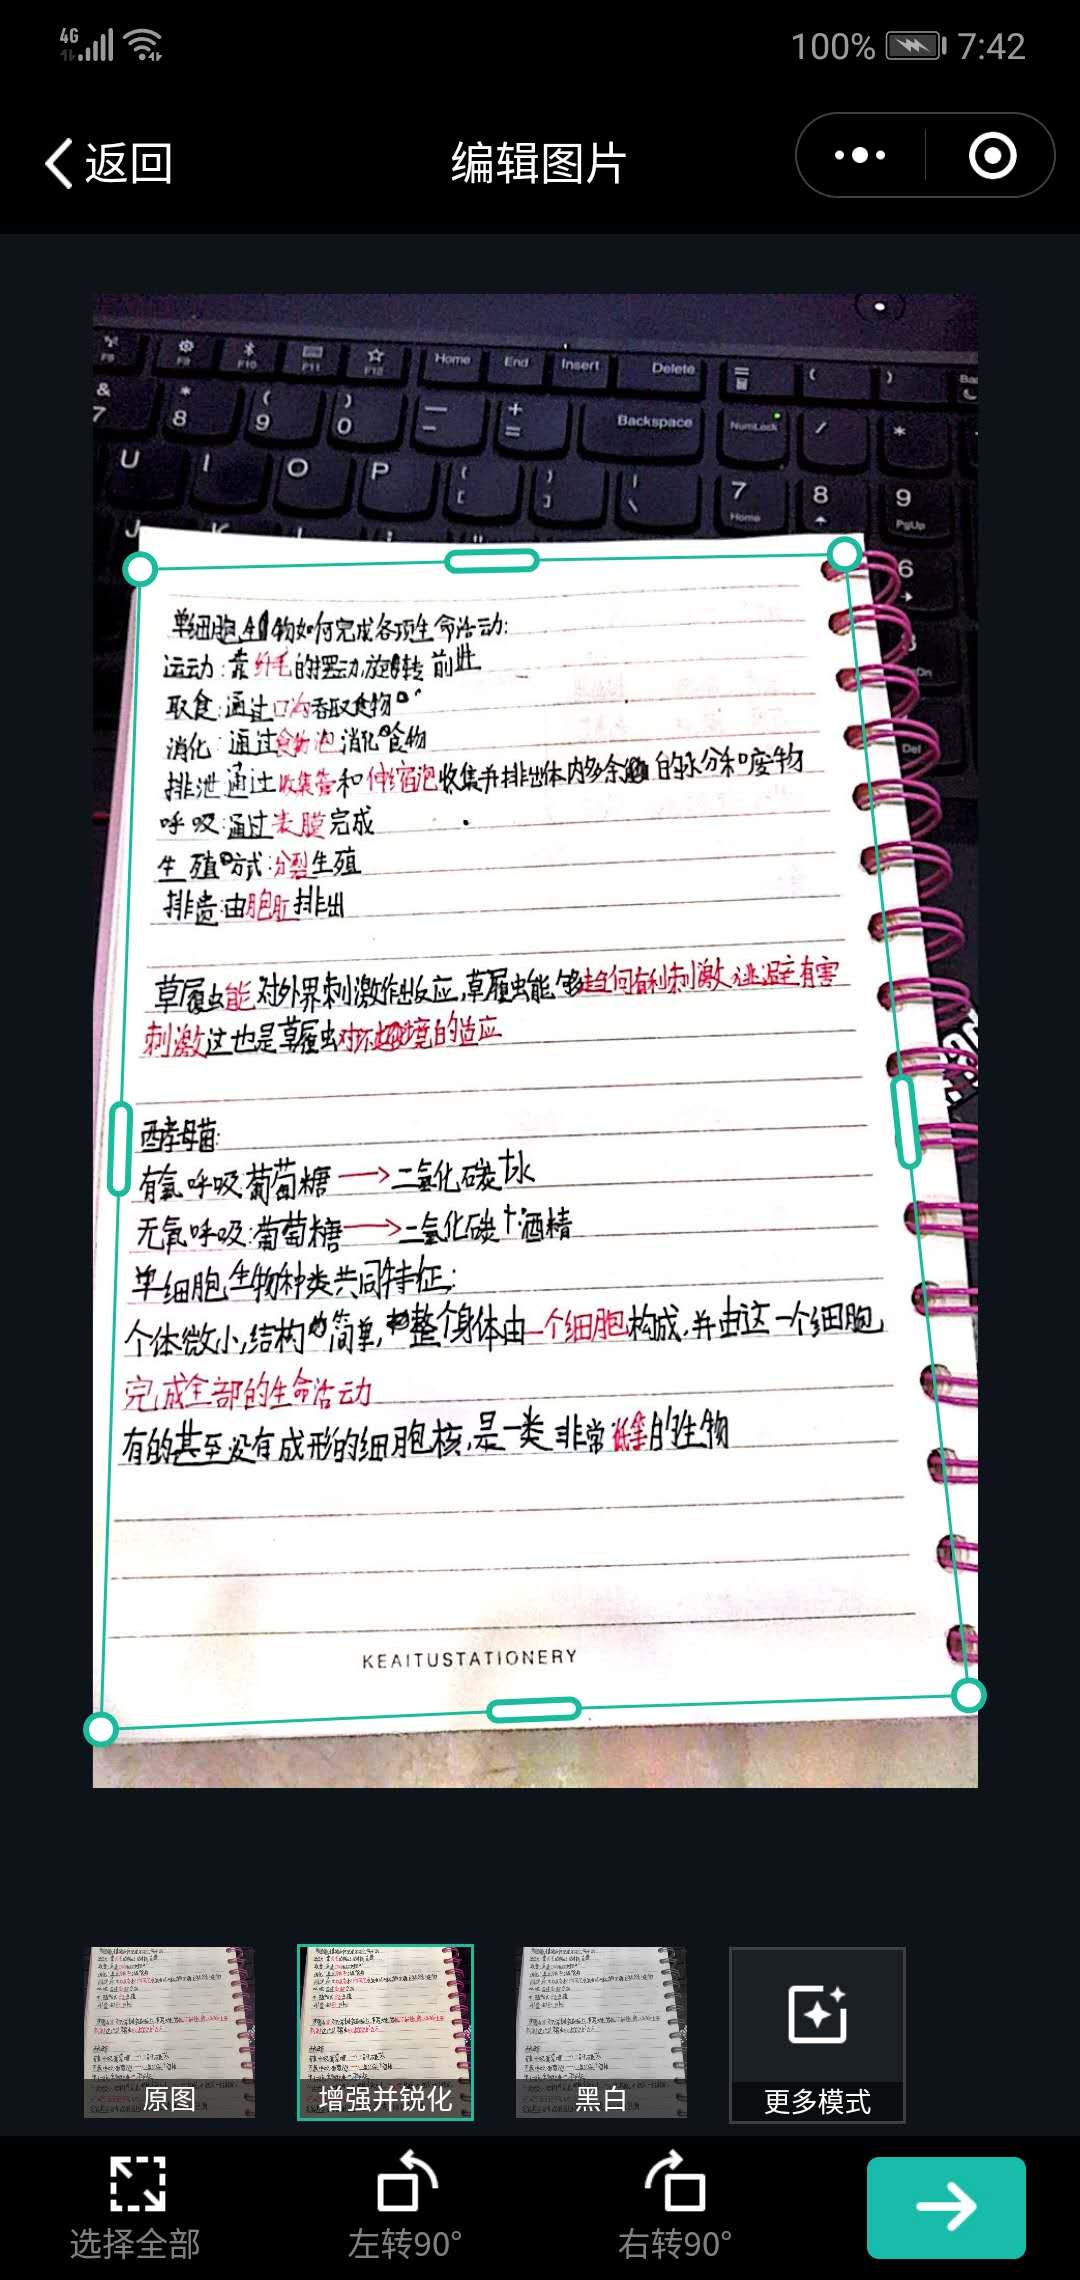 4G
100% 7:42
返回 编辑图片
F9 F10 F11 F12 Home End Insert Delete
& 7 * 8 ( 9 ) 0 — - + = Backspace NumLock / *
U I O P { [ } ] | \ 7 Home 8 9 PgUp
J K 6
Del
单细胞生物如何完成各项生命活动:
运动:靠纤毛的摆动,旋转前进
取食:通过口沟吞取食物
消化:通过食物泡消化食物
排泄:通过收集管和伸缩泡收集并排出体内多余的水分和废物
呼吸:通过表膜完成
生殖方式:分裂生殖
排遗:由胞肛排出
草履虫能对外界刺激作出反应,草履虫能够趋向有利刺激,逃避有害
刺激这也是草履虫对环境的适应
酵母菌:
有氧呼吸:葡萄糖→二氧化碳+水
无氧呼吸:葡萄糖→二氧化碳+酒精
单细胞生物种类共同特征:
个体微小,结构简单,整个身体由一个细胞构成,并由这一个细胞
完成全部的生命活动
有的甚至没有成形的细胞核,是一类非常低等的生物
KEAITUSTATIONERY
原图 增强并锐化 黑白 更多模式
选择全部 左转90° 右转90°